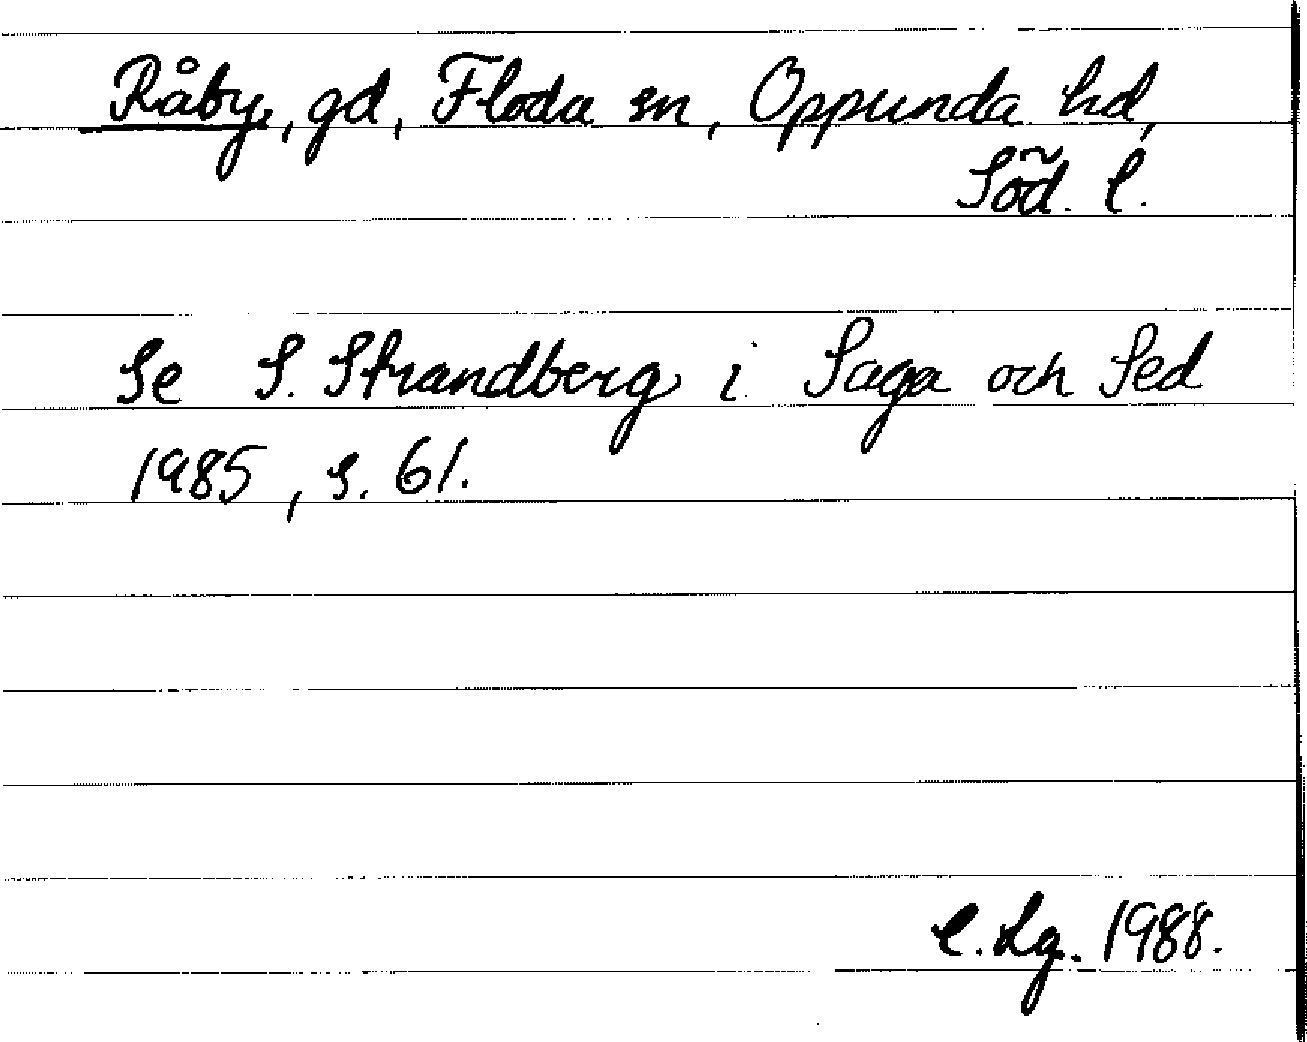 Råby, gd, Floda sn, Oppunda hd,
Söd. l.
Se S. Strandberg i Saga och Sed
1985, s. 61.
C. Lg. 1988.